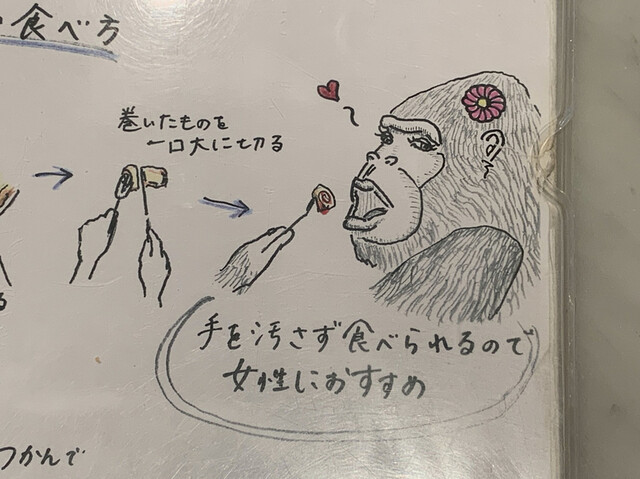 食べ方
巻いたものを
一口大に切る
る
手を汚さず食べられるので
女性におすすめ
つかんで